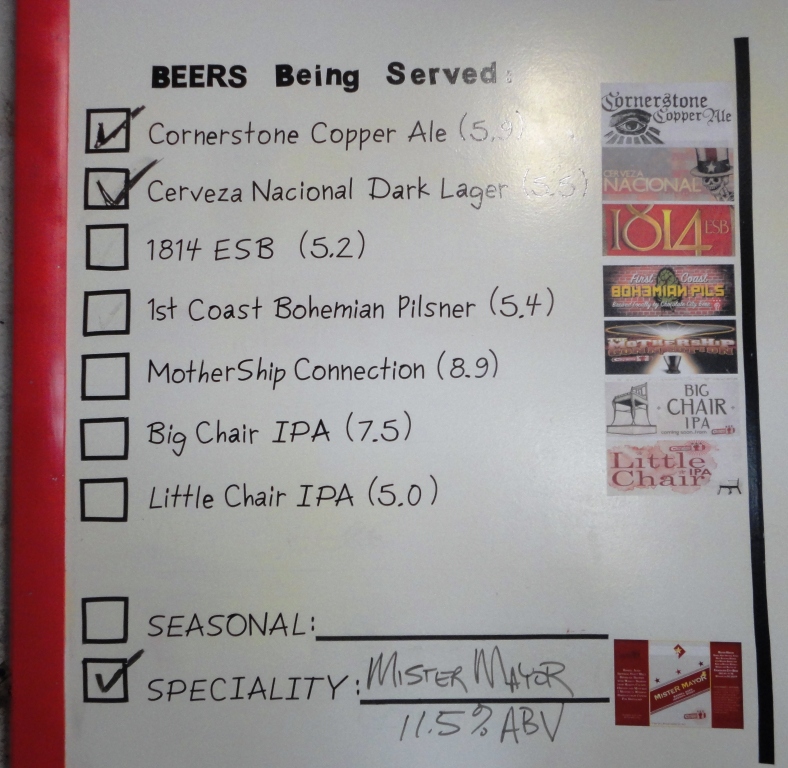 BEERS Being Served:
Cornerstone Copper Ale (5.9)
Cerveza Nacional Dark Lager (5.5)
1814 ESB (5.2)
1st Coast Bohemian Pilsner (5.4)
MotherShip Connection (8.9)
Big Chair IPA (7.5)
Little Chair IPA (5.0)
SEASONAL:
SPECIALITY: MISTER MAYOR
11.5% ABV
Cornerstone
Copper Ale
CERVEZA
NACIONAL
1814 ESB
First Coast
BOHEMIAN PILS
MOTHERSHIP
BIG
CHAIR
IPA
Little
IPA
Chair
MISTER MAYOR